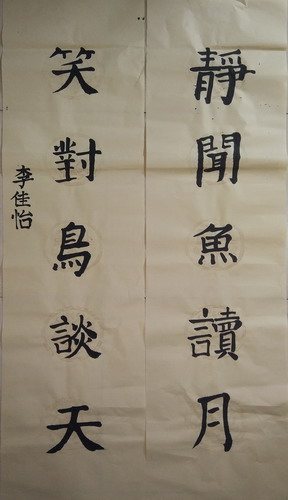 靜聞魚讀月
笑對鳥談天
李佳怡